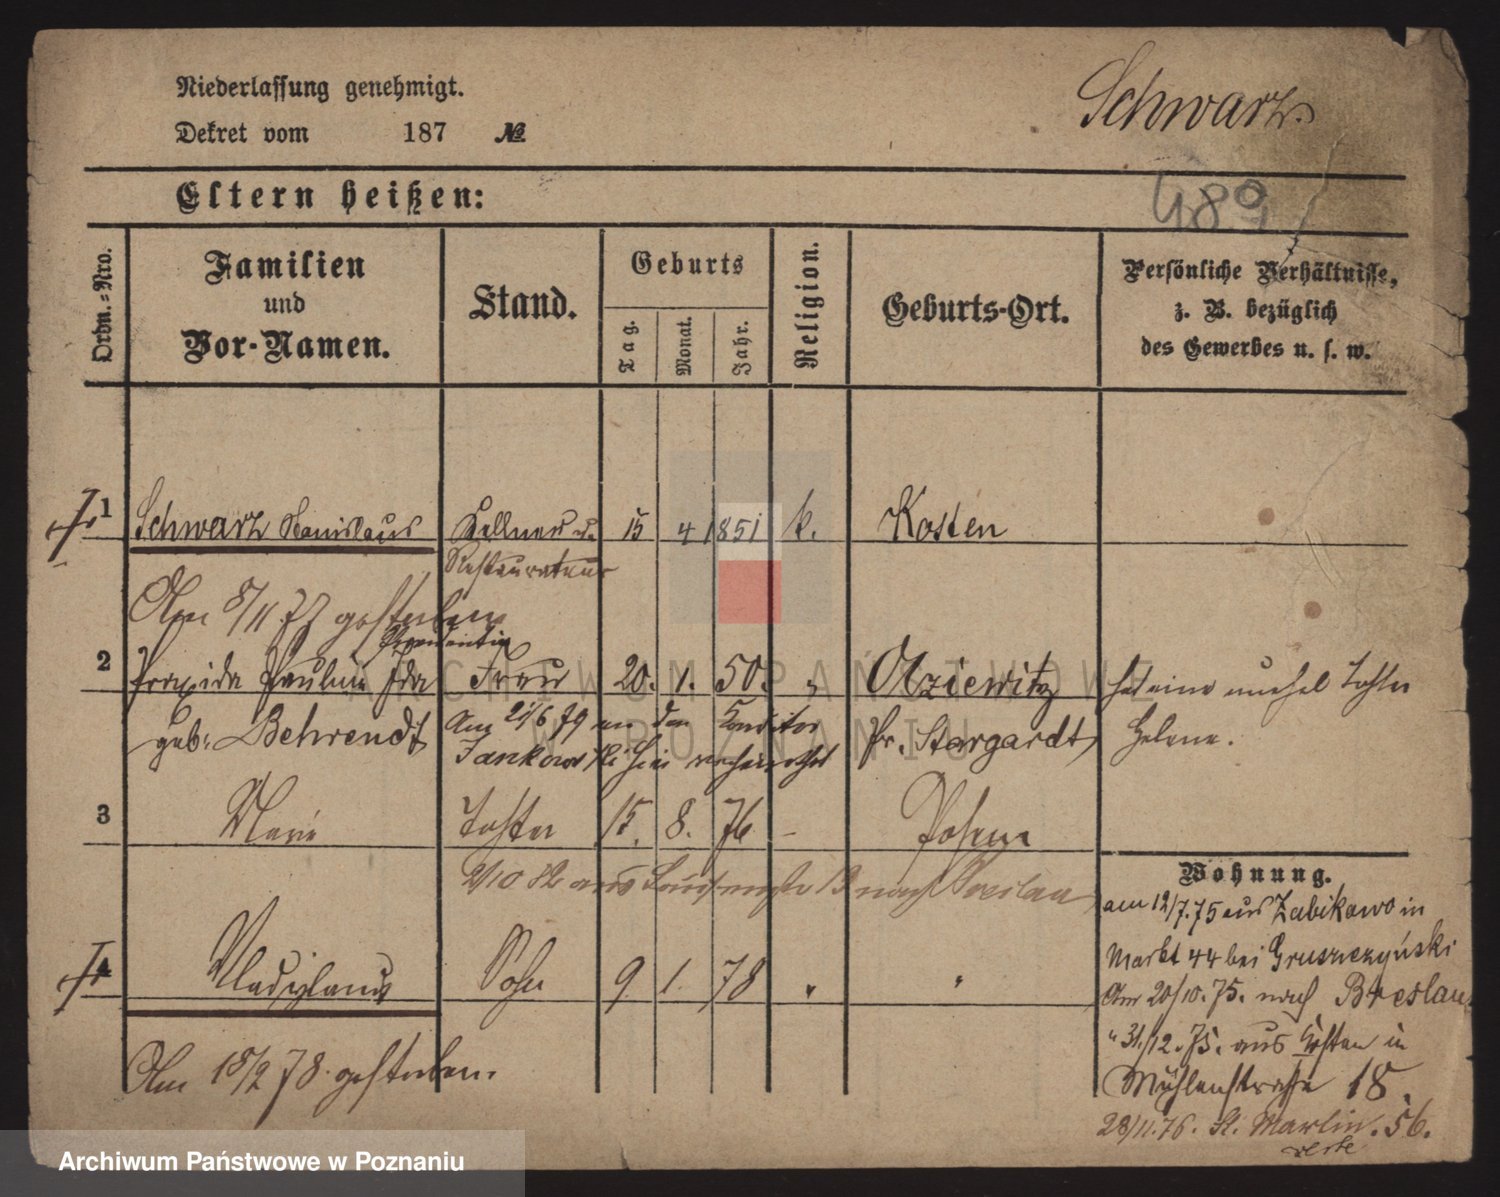 Niederlassung genehmigt.
Dekret vom 187 №
Schwarz.
489
Eltern heißen:
Ordn.=Nro.
Familien
und
Vor-Namen.
Stand.
Geburts
Tag.
Monat.
Jahr.
Religion.
Geburts-Ort.
Persönliche Verhältnisse,
z. B. bezüglich
des Gewerbes u. s. w.
1 Schwarz Stanislaus Kellner u. 15 4 1851 k. Kosten
Restaurateur
Am 8/11 77 gestorben
2 Praxida Pauline Ida Frau 20. 1. 50. " Olziewitz hat eine unehel Tochter
geb: Behrendt Am 21/6 79 an den Konditor Pr. Stargardt Helene.
Jankowski hier verheirathet
3 Marie Tochter 15. 8. 76 - Posen
2/10 82 aus 13 nach Breslau
4 Vladislaus Sohn 9. 1. 78 " "
Am 18/2 78. gestorben.
Wohnung.
am 12/7.75 aus Zabikowo in
Markt 44 bei Gruszczyński
Am 20/10.75. nach Breslau
" 31/12.75. aus Kosten in
Mühlenstrasse 18.
28/11.76. St. Martin. 56.
ARCHIWUM PAŃSTWOWE
W POZNANIU
Archiwum Państwowe w Poznaniu